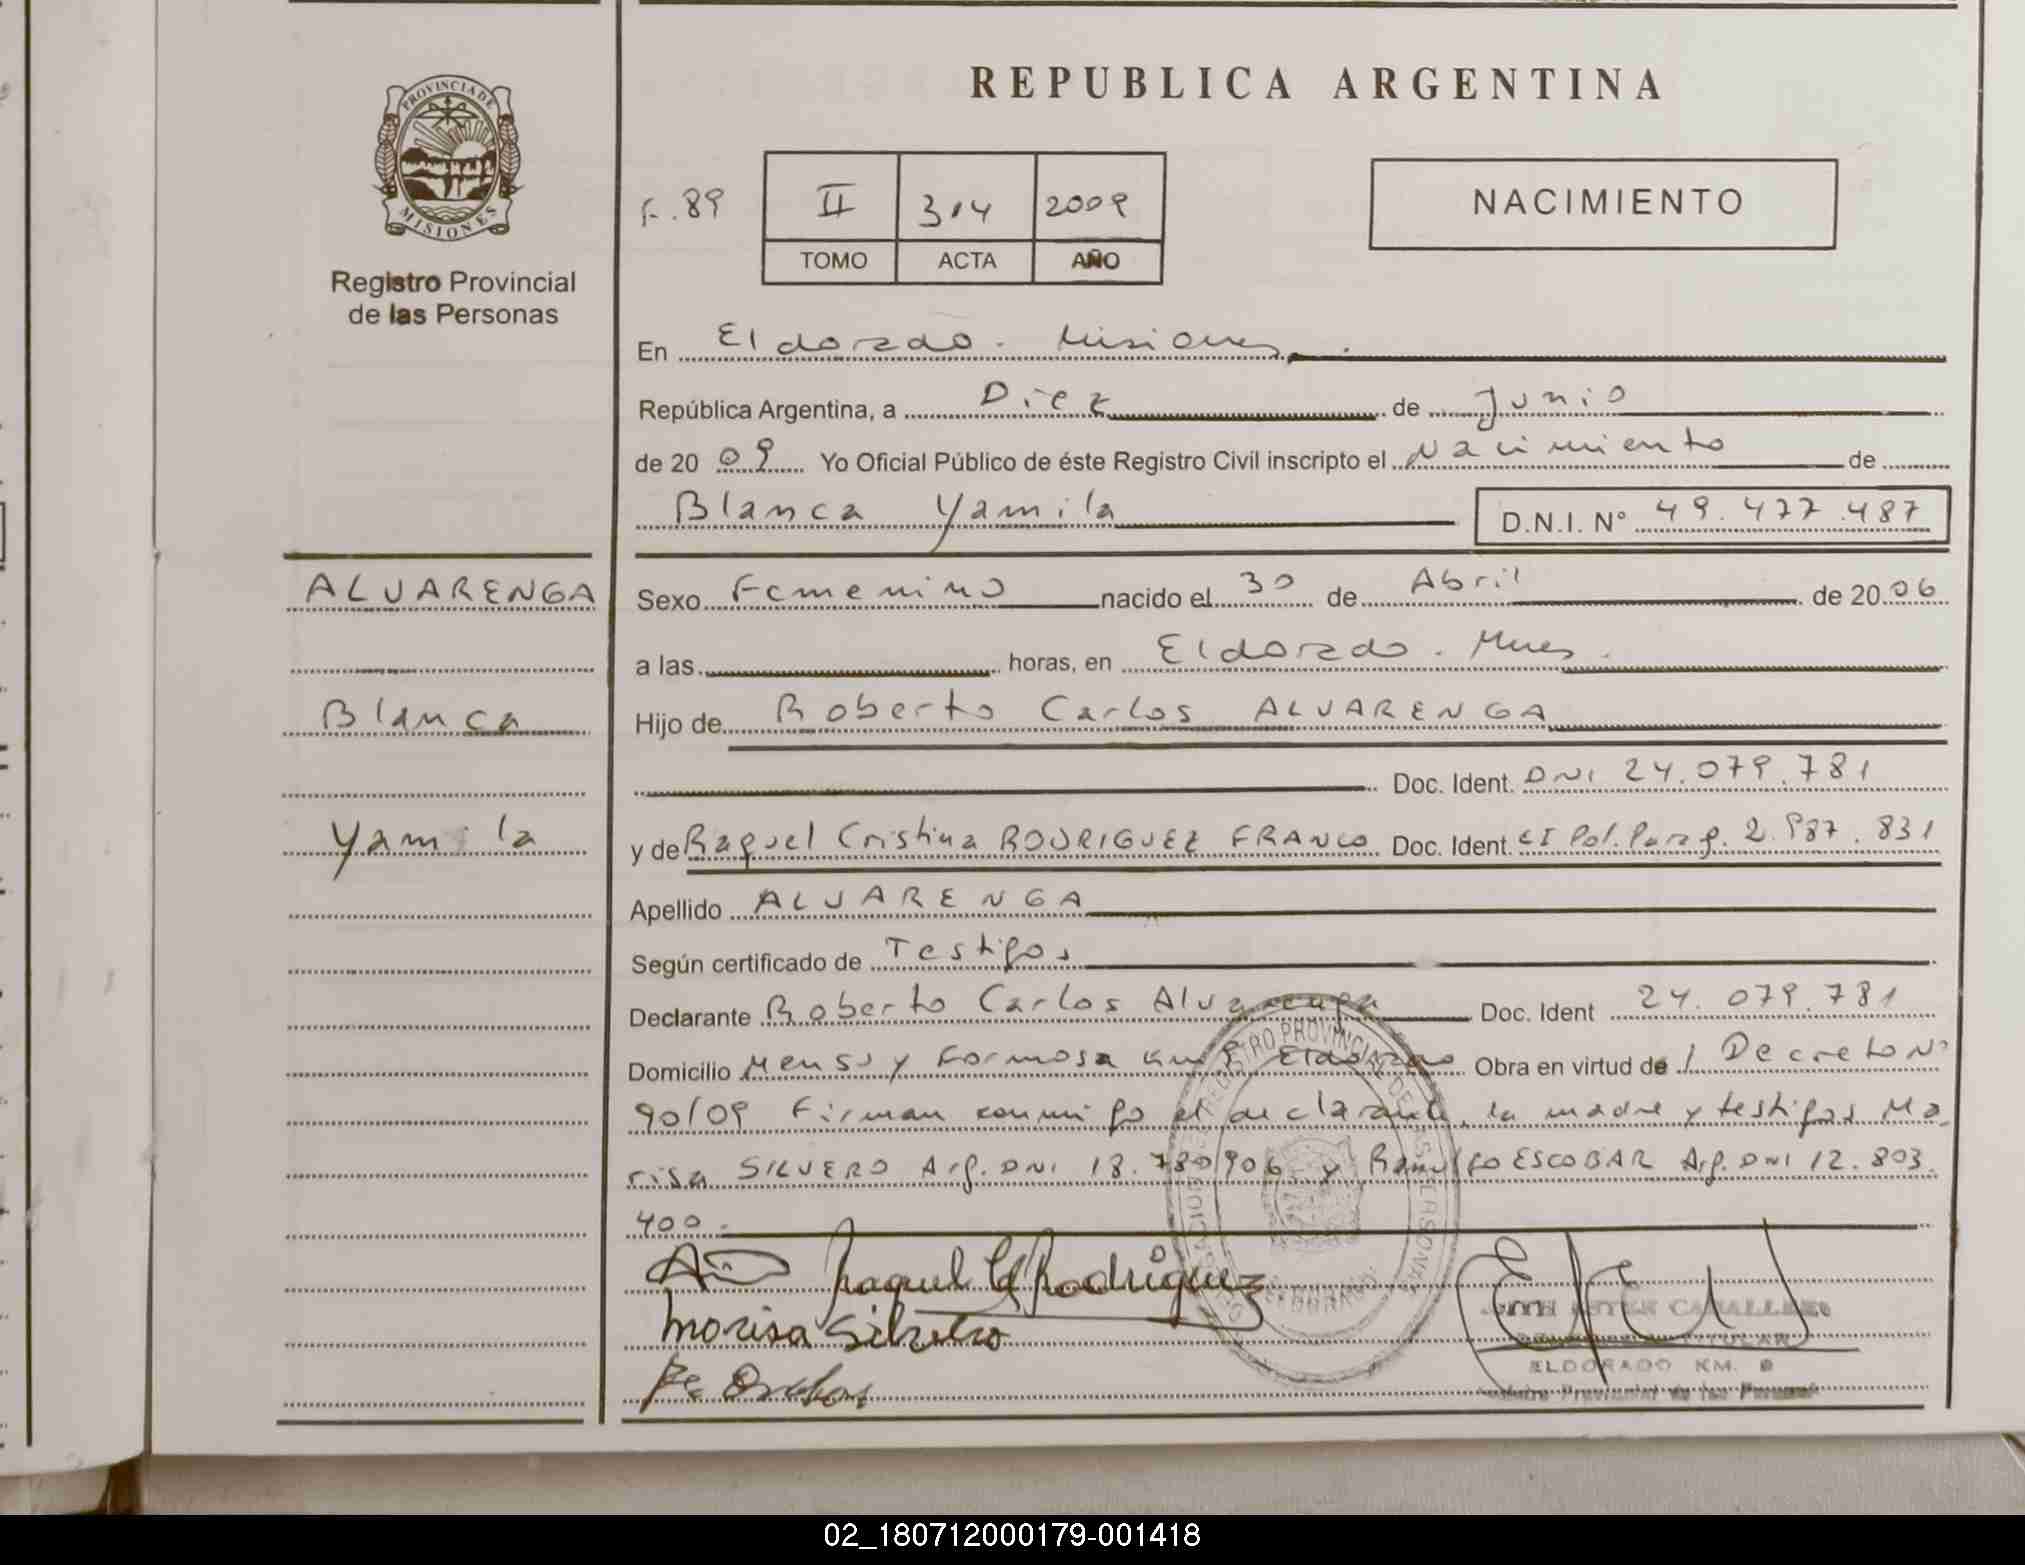 REPUBLICA ARGENTINA
PROVINCIA DE
MISIONES
Registro Provincial
de las Personas
F. 89
II 314 2009
TOMO ACTA AÑO
NACIMIENTO
En Eldorado. Misiones.
República Argentina, a Diez de Junio
de 20 09 Yo Oficial Público de éste Registro Civil inscripto el Nacimiento de
Blanca Yamila D.N.I. Nº 49.477.487
ALVARENGA
Blanca
Yamila
Sexo Femenino nacido el 30 de Abril de 20 06
a las horas, en Eldorado. Mnes.
Hijo de Roberto Carlos ALVARENGA
Doc. Ident. DNI 24.079.781
y de Raquel Cristina RODRIGUEZ FRANCO Doc. Ident. CI Pol. Parag. 2.987.831
Apellido ALVARENGA
Según certificado de Testigos
Declarante Roberto Carlos Alvarenga Doc. Ident 24.079.781
Domicilio Mensú y Formosa Km 9 Eldorado Obra en virtud de l Decreto Nº
90/09 Firman conmigo el declarante, la madre y testigos Ma
risa SILVERO Arg. DNI 18.780.906 y ESCOBAR Arg. DNI 12.803.
400.
Raquel C Rodriguez
Marisa Silvero
ELDORADO KM. 9
Registro Provincial de las Personas
02_180712000179-001418